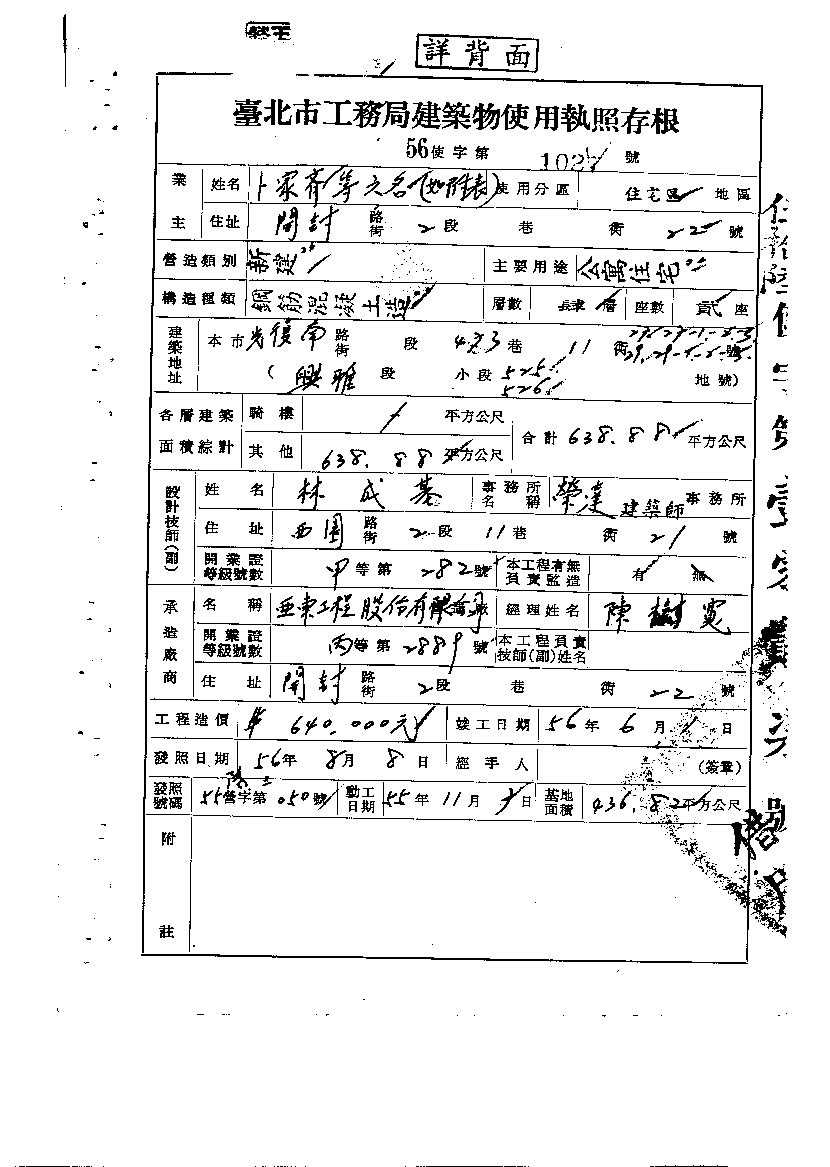 詳背面
臺北市工務局建築物使用執照存根
56使字第 102 號
業主 姓名 卜家齊等 名(如附表) 使用分區 住宅區 地區
住址 開封 路街 2段 巷 衖 22 號
營造類別 新建 主要用途 公寓住宅
構造種類 鋼筋混凝土造 層數 肆層 座數 貳座
建築地址 本市光復南路街 段 453巷 11衖 號
(興雅段 小段 525 526 地號)
各層建築面積綜計 騎樓 平方公尺 合計638.88平方公尺
其他 638.88平方公尺
設計技師(副) 姓名 林成基 事務所名稱 榮達建築師事務所
住址 西園路街2段11巷 衖21號
開業證等級號數 甲等第282號 本工程有無負責監造 有 無
承造廠商 名稱 亞東工程股份有限公司廠 經理姓名 陳樹寬
開業證等級號數 丙等第2889號 本工程負責技師(副)姓名
住址 開封路街2段 巷 衖22號
工程造價 640,000元 竣工日期 56年6月1日
發照日期 56年8月8日 經手人 (簽章)
發照號碼 55營字第050號 動工日期 55年11月 日 基地面積 436.82平方公尺
附註